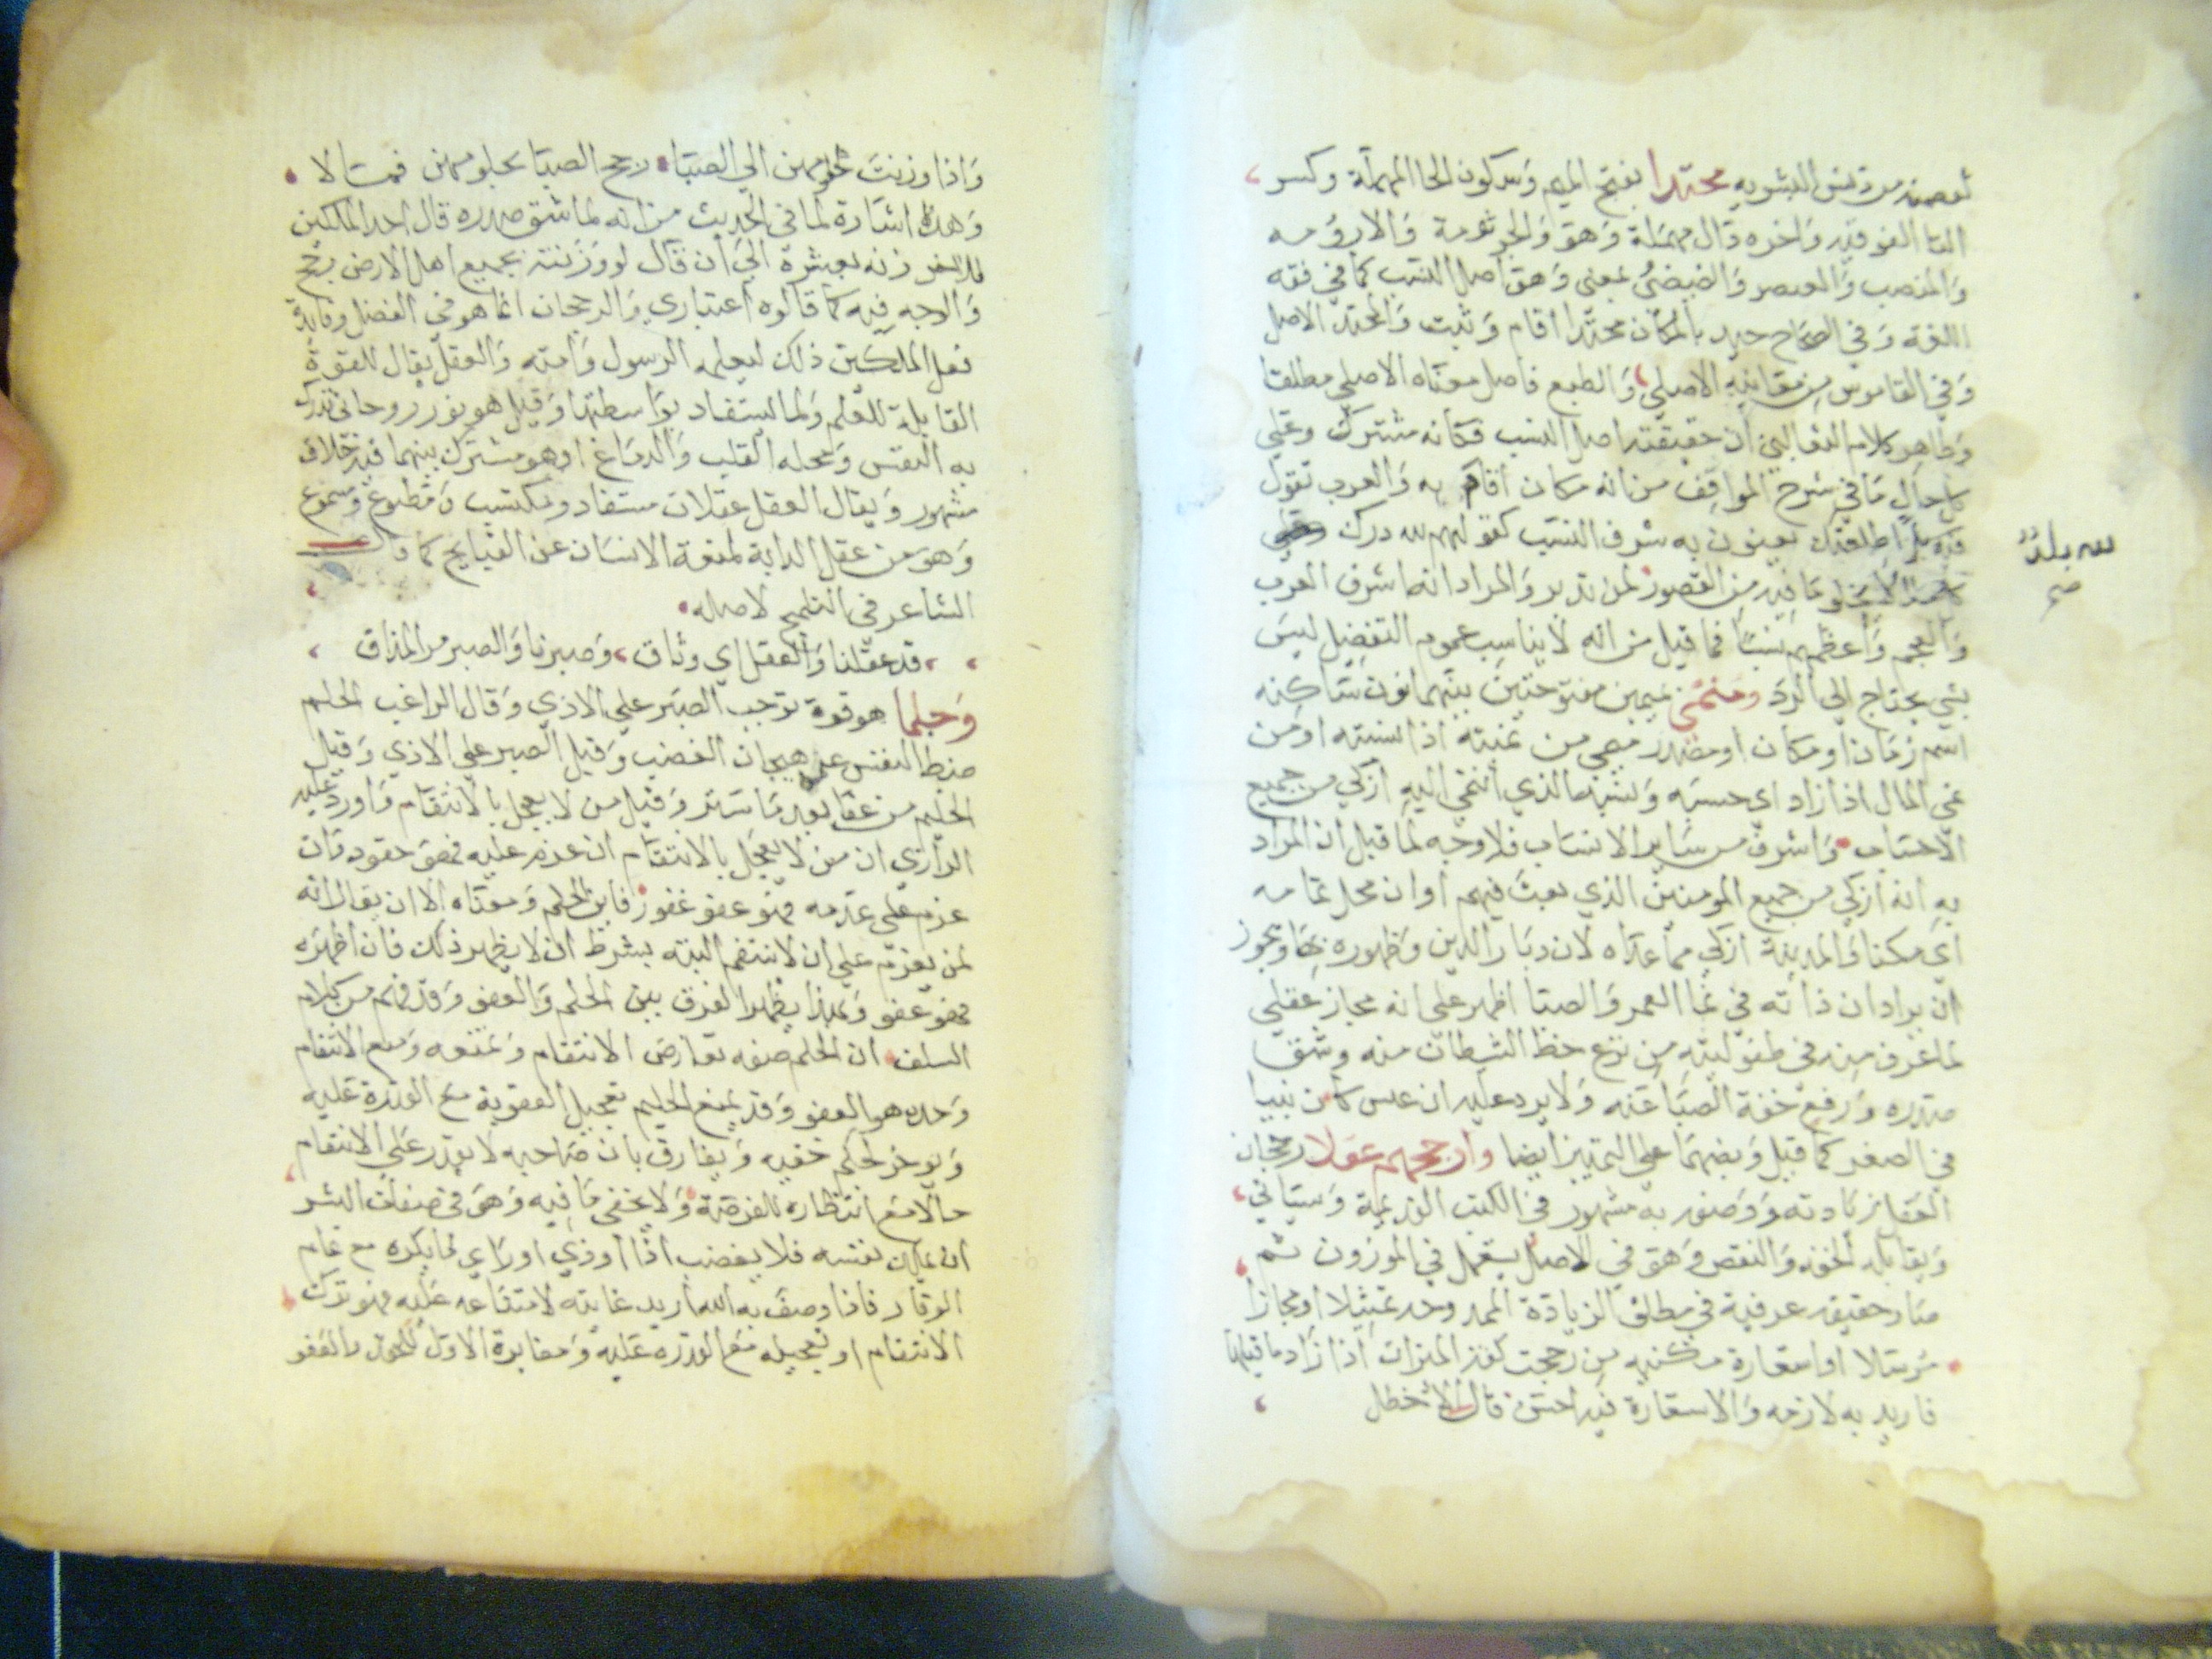 محتدا بفتح الميم وسكون الحا المهملة وكسر
التا الفوقيه واخره دال مهملة وهو والجرثومة والارومه
والمنصب والعنصر والضيضئ بمعنى وهو اصل النسب كما في فقه
اللغة وفي الصحاح حتد بالمكان محتدا اقام وثبت والمحتد الاصل
وفي القاموس من معانيه الاصل والطبع فاصل معناه الاصلي مطلقا
وظاهر كلام الثعالبي ان حقيقته اصل النسب فكانه مشترك وعلي
كل حال ما في شرح المواقف من انه مكان اقام به والعرب تقول
يعنون به شرف النسب كقولهم لله درك
لله بلد
صح
لا يخلو ما فيه من القصور لمن تدبر والمراد انه اشرف العرب
والعجم واعظمهم نسبا فما قيل من انه لا يناسب عموم التفضيل ليس
بشي يحتاج الي الرد ومنمى بميمين مفتوحتين بينهما نون ساكنه
اسم زمان او مكان او مصدر ميمي من نميته اذا نسبته او من
نمي المال اذا زاد اي حسبه ونسبه الذي انتمي اليه ازكي من جميع
الاحساب واشرف من ساير الانساب فلا وجه لما قيل ان المراد
به انه ازكي من جميع المومنين الذي بعث فيهم او ان محل نمامه
اي مكة والمدينة ازكي مما عداه لان ديار الدين وظهوره بها ويجوز
ان يراد ان ذاته في نما العمر والصبا اظهر علي انه مجاز عقلي
لما عرف منه في طفوليته من نزع حظ الشيطان منه وشق
صدره ورفع خفة الصبا عنه ولا يرد عليه ان عيسى كان نبيا
في الصغر كما قيل ونصبهما علي التمييز ايضا وارجحهم عقلا رجحان
العقل زيادته ووصفه به مشهور في الكتب القديمة وسياتي
ويقابله الخفه والنقص وهو في الاصل يستعمل في الموزون ثم
صار حقيقه عرفية في مطلق الزيادة الممدوحه تمثيلا او مجازا
مرسلا او استعارة مكنيه من رجحت كفة الميزان اذا زاد ما قبلها
فاريد به لازمه والاستعارة فيه احسن قال الاخطل
واذا وزنت حلومهن الي الصبا رجح الصبا بحلومهن فمالا
وهذه اشارة لما في الحديث من انه لما شق صدره قال احد الملكين
للاخر زنه بعشرة الي ان قال لو وزنته بجميع اهل الارض رجح
والوجه فيه كما قالوه اعتباري والرجحان انما هو في الفضل وفايدة
فعل الملكين ذلك ليعلمه الرسول وامته والعقل يقال للقوة
القابلة للعلم ولما يستفاد بواسطتها وقيل هو نور روحاني تدرك
به النفس ومحله القلب والدماغ او هو مشترك بينهما فيه خلاف
مشهور ويقال العقل عقلان مستفاد ومكتسب ومطبوع ومسموع
وهو من عقل الدابة لمنعه الانسان عن القبايح كما قال
الشاعر في التلميح لاصله
قد عقلنا والعقل اي وثاق وصبرنا والصبر مر المذاق
وحلما هو قوة توجب الصبر علي الاذي وقال الراغب الحلم
ضبط النفس عن هيجان الغضب وقيل الصبر علي الاذي وقيل
الحليم من عفا بعد ما ستر وقيل من لا يعجل بالانتقام واورد عليه
الرازي ان من لا يعجل بالانتقام ان عزم عليه فهو حقود وان
عزم علي عدمه فهو عفو غفور فاين الحلم ومعناه الا ان يقال انه
لمن يعزم علي ان لا ينتقم البته بشرط ان لا يظهر ذلك فان اظهره
فهو عفو وبهذا يظهر الفرق بين الحلم والعفو وقد فهم من كلام
السلف ان الحلم صفه تعارض الانتقام وتمنعه ومنع الانتقام
وحده هو العفو وقد يمنع الحليم تعجيل العقوبة مع القدرة عليه
ويوخر لحكم خفيه ويفارق بان صاحبه لا يقدر علي الانتقام
حالا مع انتظاره للفرصة ولا يخفي ما فيه وهو في صفات البشر
ان يملك نفسه فلا يغضب اذا اوذي او راي لما يكره مع تمام
الوقار فاذا وصف به الله اريد غايته لامتناعه عليه فهو ترك
الانتقام او تعجيله مع القدره عليه ومغايرة الاول بالعفو